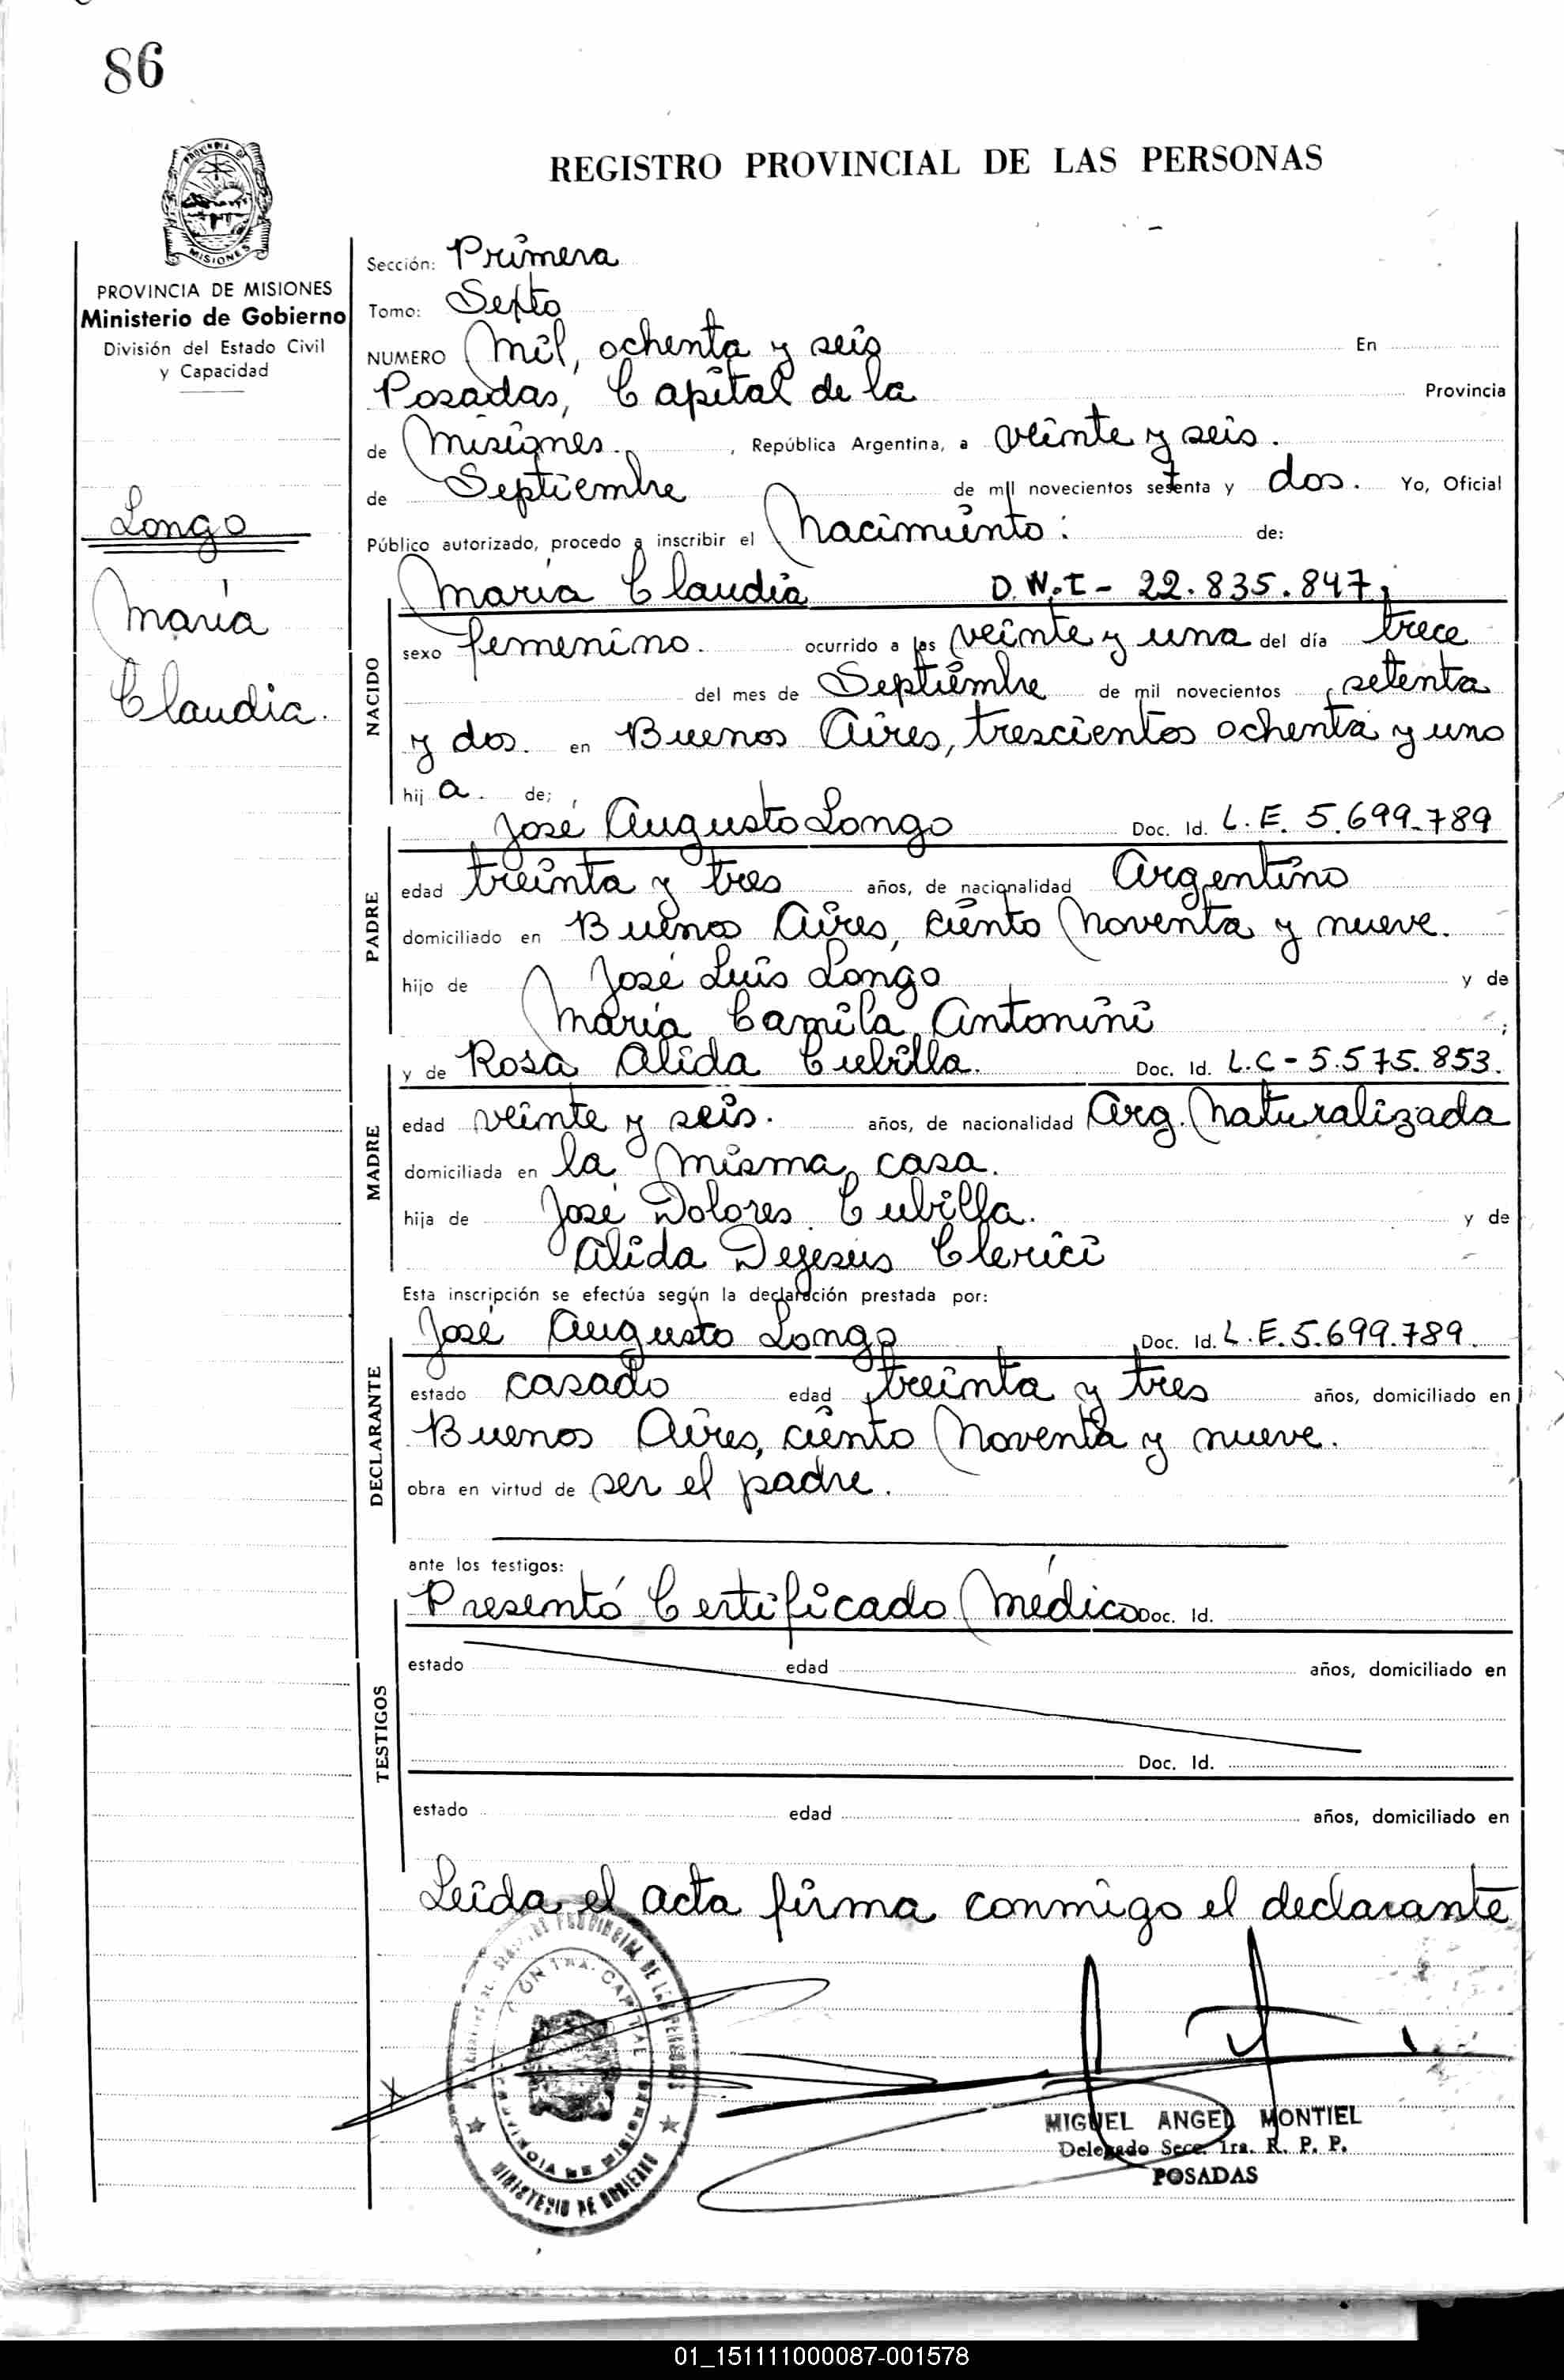 86
REGISTRO PROVINCIAL DE LAS PERSONAS
PROVINCIA DE MISIONES
Ministerio de Gobierno
División del Estado Civil
y Capacidad
Longo
María
Claudia.
Sección: Primera
Tomo: Sexto
NUMERO Mil, ochenta y seis En
Posadas, Capital de la Provincia
de Misiones. , República Argentina, a veinte y seis.
de Septiembre de mil novecientos setenta y dos. Yo, Oficial
Público autorizado, procedo a inscribir el Nacimiento: de:
NACIDO
María Claudia D.N.I - 22.835.847;
sexo femenino. ocurrido a las veinte y una del día trece
del mes de Septiembre de mil novecientos setenta
y dos. en Buenos Aires, trescientos ochenta y uno
hij a. de;
PADRE
José Augusto Longo Doc. Id. L.E. 5.699.789
edad treinta y tres años, de nacionalidad Argentino
domiciliado en Buenos Aires, ciento noventa y nueve.
hijo de José Luis Longo y de
María Camila Antonini ;
MADRE
y de Rosa Alida Cubilla. Doc. Id. L.C - 5.575.853.
edad veinte y seis. años, de nacionalidad Arg. Naturalizada
domiciliada en la misma casa.
hija de José Dolores Cubilla. y de
Alida Dejesus Clerici
Esta inscripción se efectúa según la declaración prestada por:
DECLARANTE
José Augusto Longo Doc. Id. L.E. 5.699.789
estado casado edad treinta y tres años, domiciliado en
Buenos Aires, ciento noventa y nueve.
obra en virtud de ser el padre.
ante los testigos:
TESTIGOS
Presentó Certificado Médico Doc. Id.
estado edad años, domiciliado en
Doc. Id.
estado edad años, domiciliado en
Leída el acta firma conmigo el declarante
MINISTERIO DE GOBIERNO
MIGUEL ANGEL MONTIEL
Delegado Secc. 1ra. R. P. P.
POSADAS
01_151111000087-001578